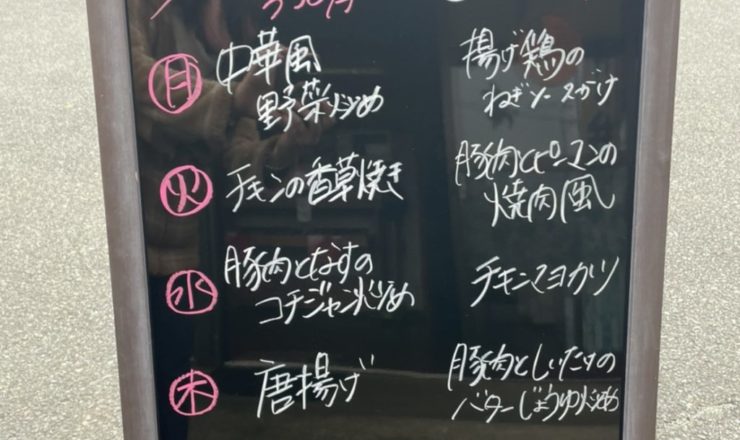 月
中華風
野菜炒め
揚げ鶏の
ねぎソースがけ
火
チキンの香草焼き
豚肉とピーマンの
焼肉風
水
豚肉となすの
コチジャン炒め
チキンマヨカツ
木
唐揚げ
豚肉としいたけの
バターじょうゆ炒め